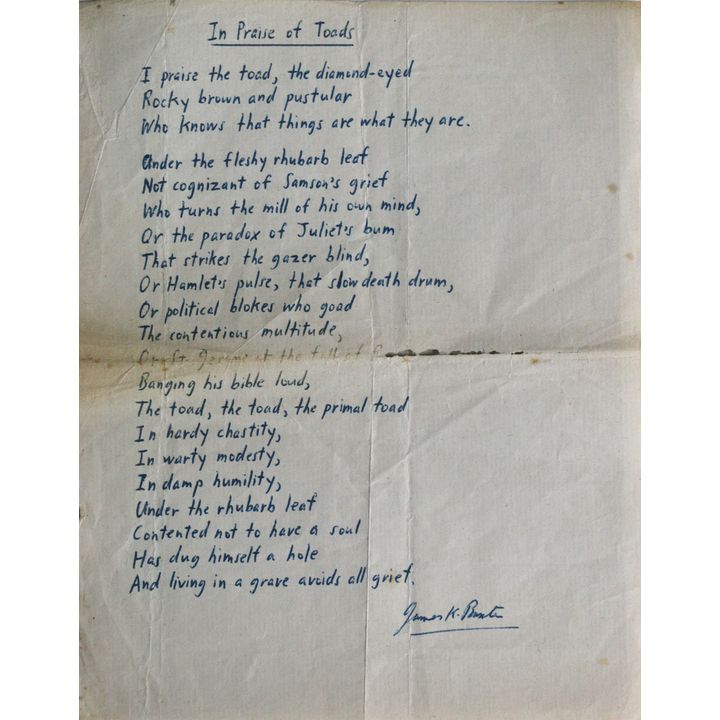 In Praise of Toads
I praise the toad, the diamond-eyed
Rocky brown and pustular
Who knows that things are what they are.
Under the fleshy rhubarb leaf
Not cognizant of Samson's grief
Who turns the mill of his own mind,
Or the paradox of Juliet's bum
That strikes the gazer blind,
Or Hamlet's pulse, that slow death drum,
Or political blokes who goad
The contentious multitude,
Or St Jerome at the fall of
Banging his bible loud,
The toad, the toad, the primal toad
In hardy chastity,
In warty modesty,
In damp humility,
Under the rhubarb leaf
Contented not to have a soul
Has dug himself a hole
And living in a grave avoids all grief.
James K. Baxter